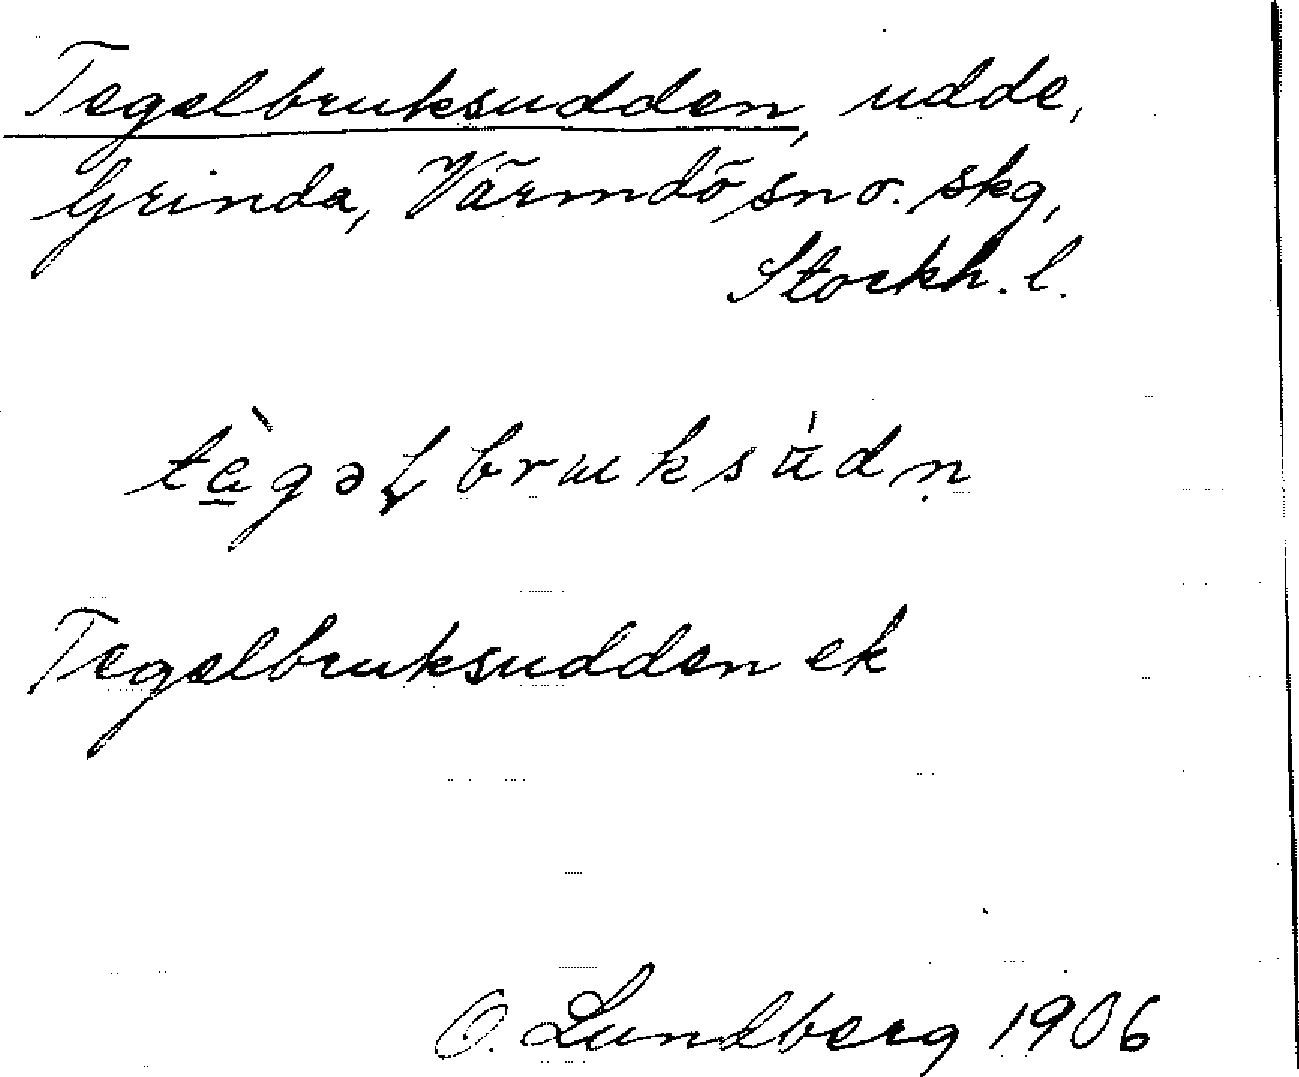 Tegelbruksudden, udde,
Grinda, Värmdö sn o. skg,
Stockh. l.
tègəɫbruksùdṇ
Tegelbruksudden ek
O. Lundberg 1906